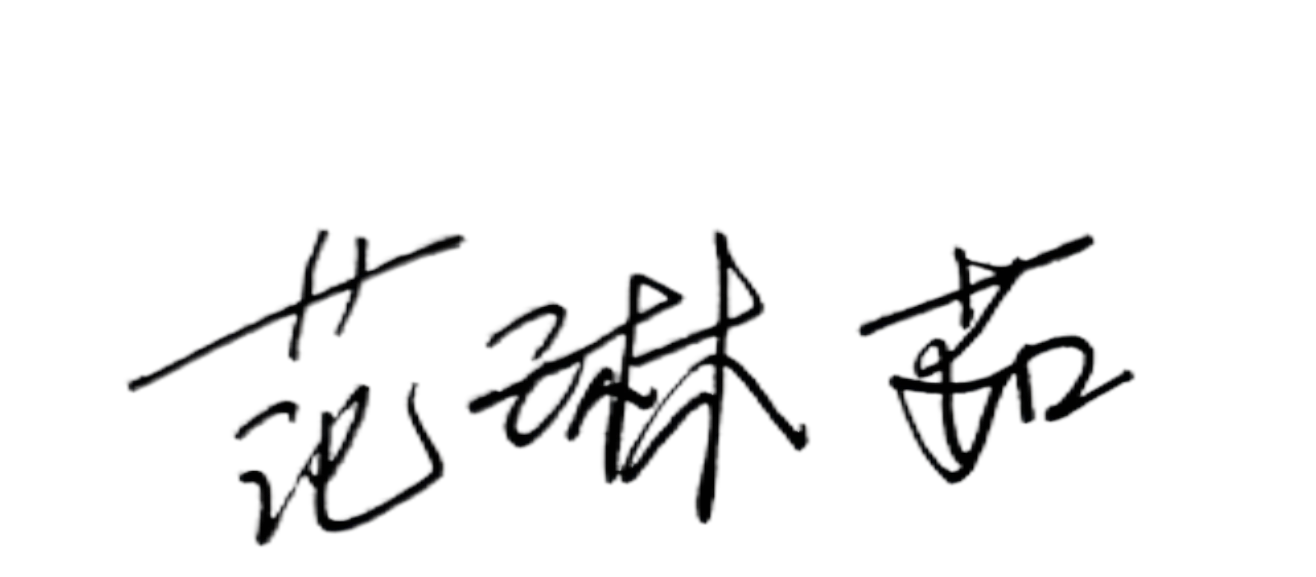 范琳茹